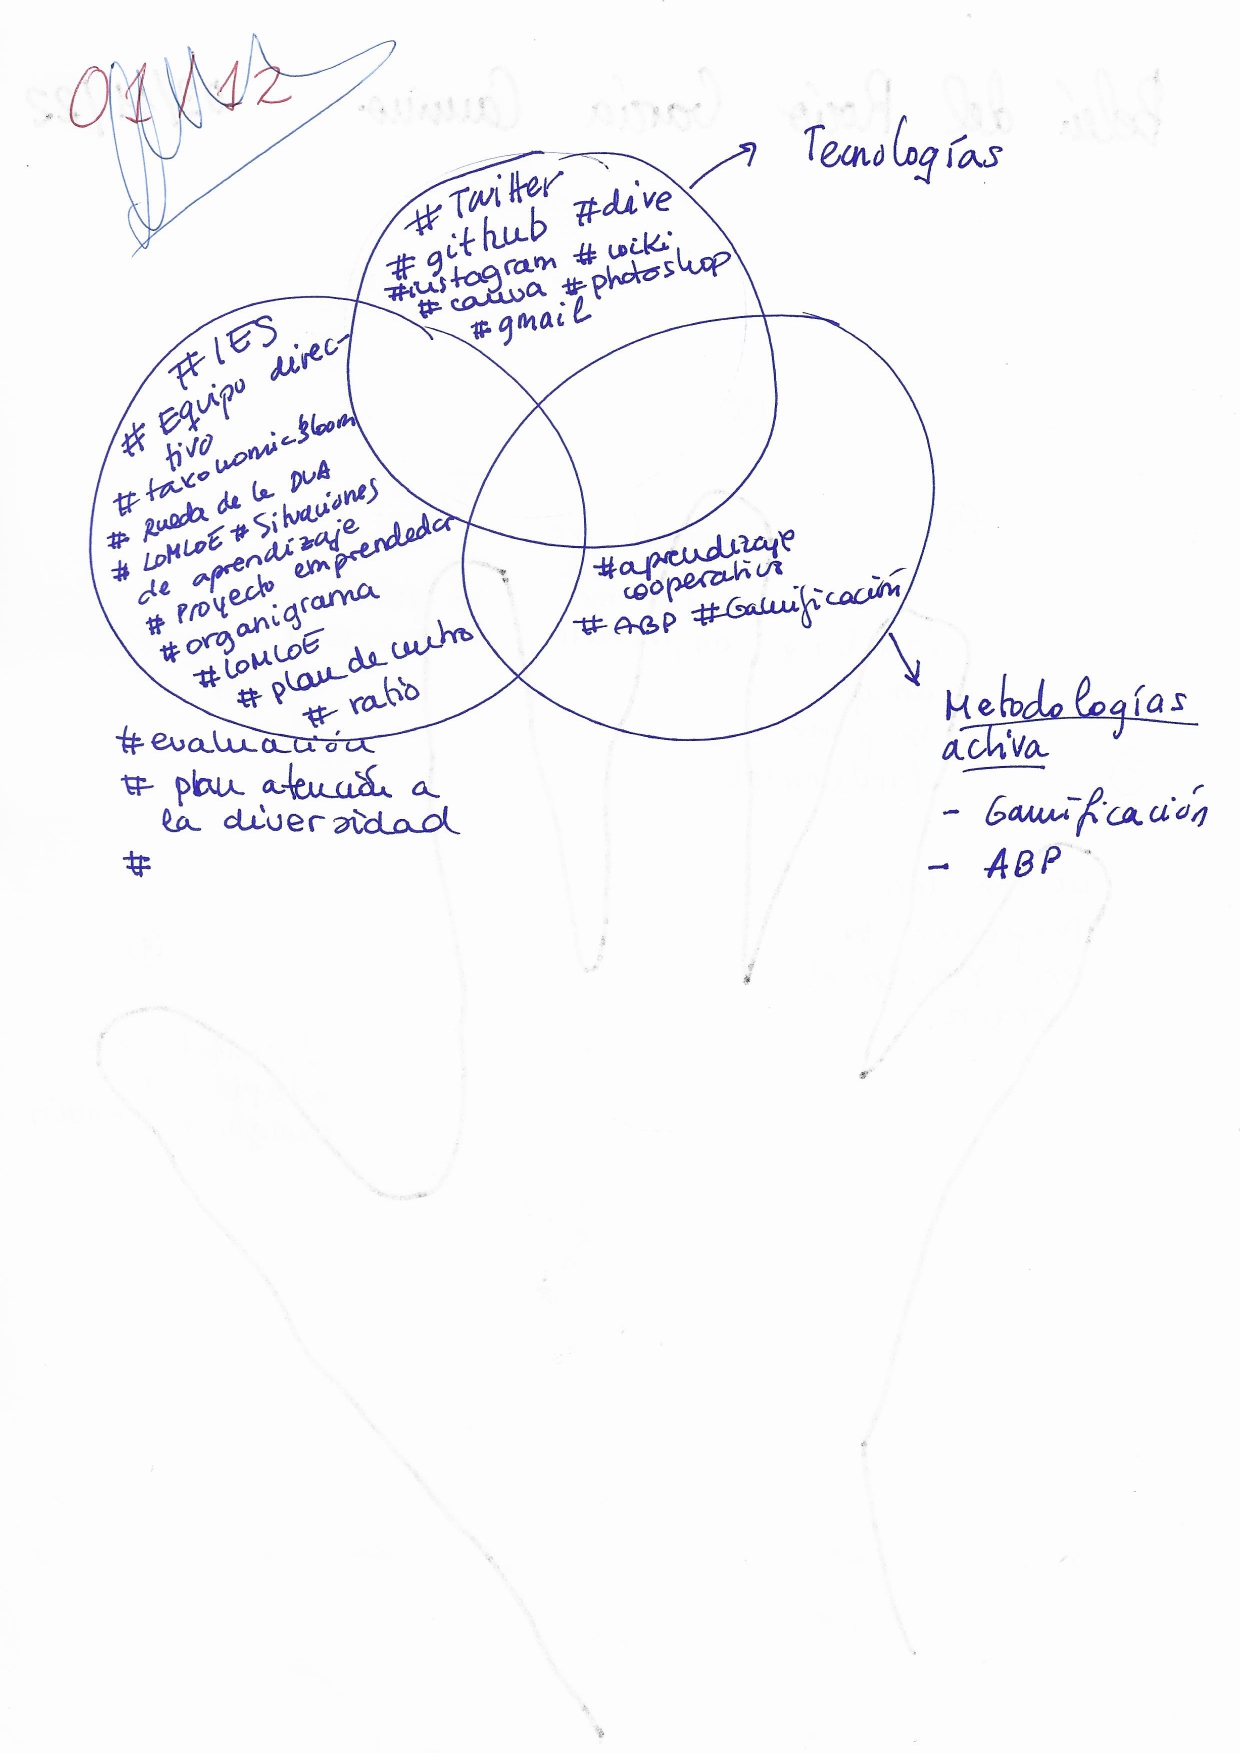 01/12
Tecnologías
# Twitter
# github #dive
#instagram # wiki
# canva #photoshop
# gmail
# IES
# Equipo direc-
tivo
# taxonomia Bloom
# Rueda de la DUA
# LOMLOE # Situaciones
de aprendizaje
# Proyecto emprendedor
# organigrama
# LOMLOE
# plan de centro
# ratio
# evaluación
# plan atención a
la diversidad
#
#aprendizaje
cooperativo
# ABP #Gamificación
Metodologías
activa
- Gamificación
- ABP